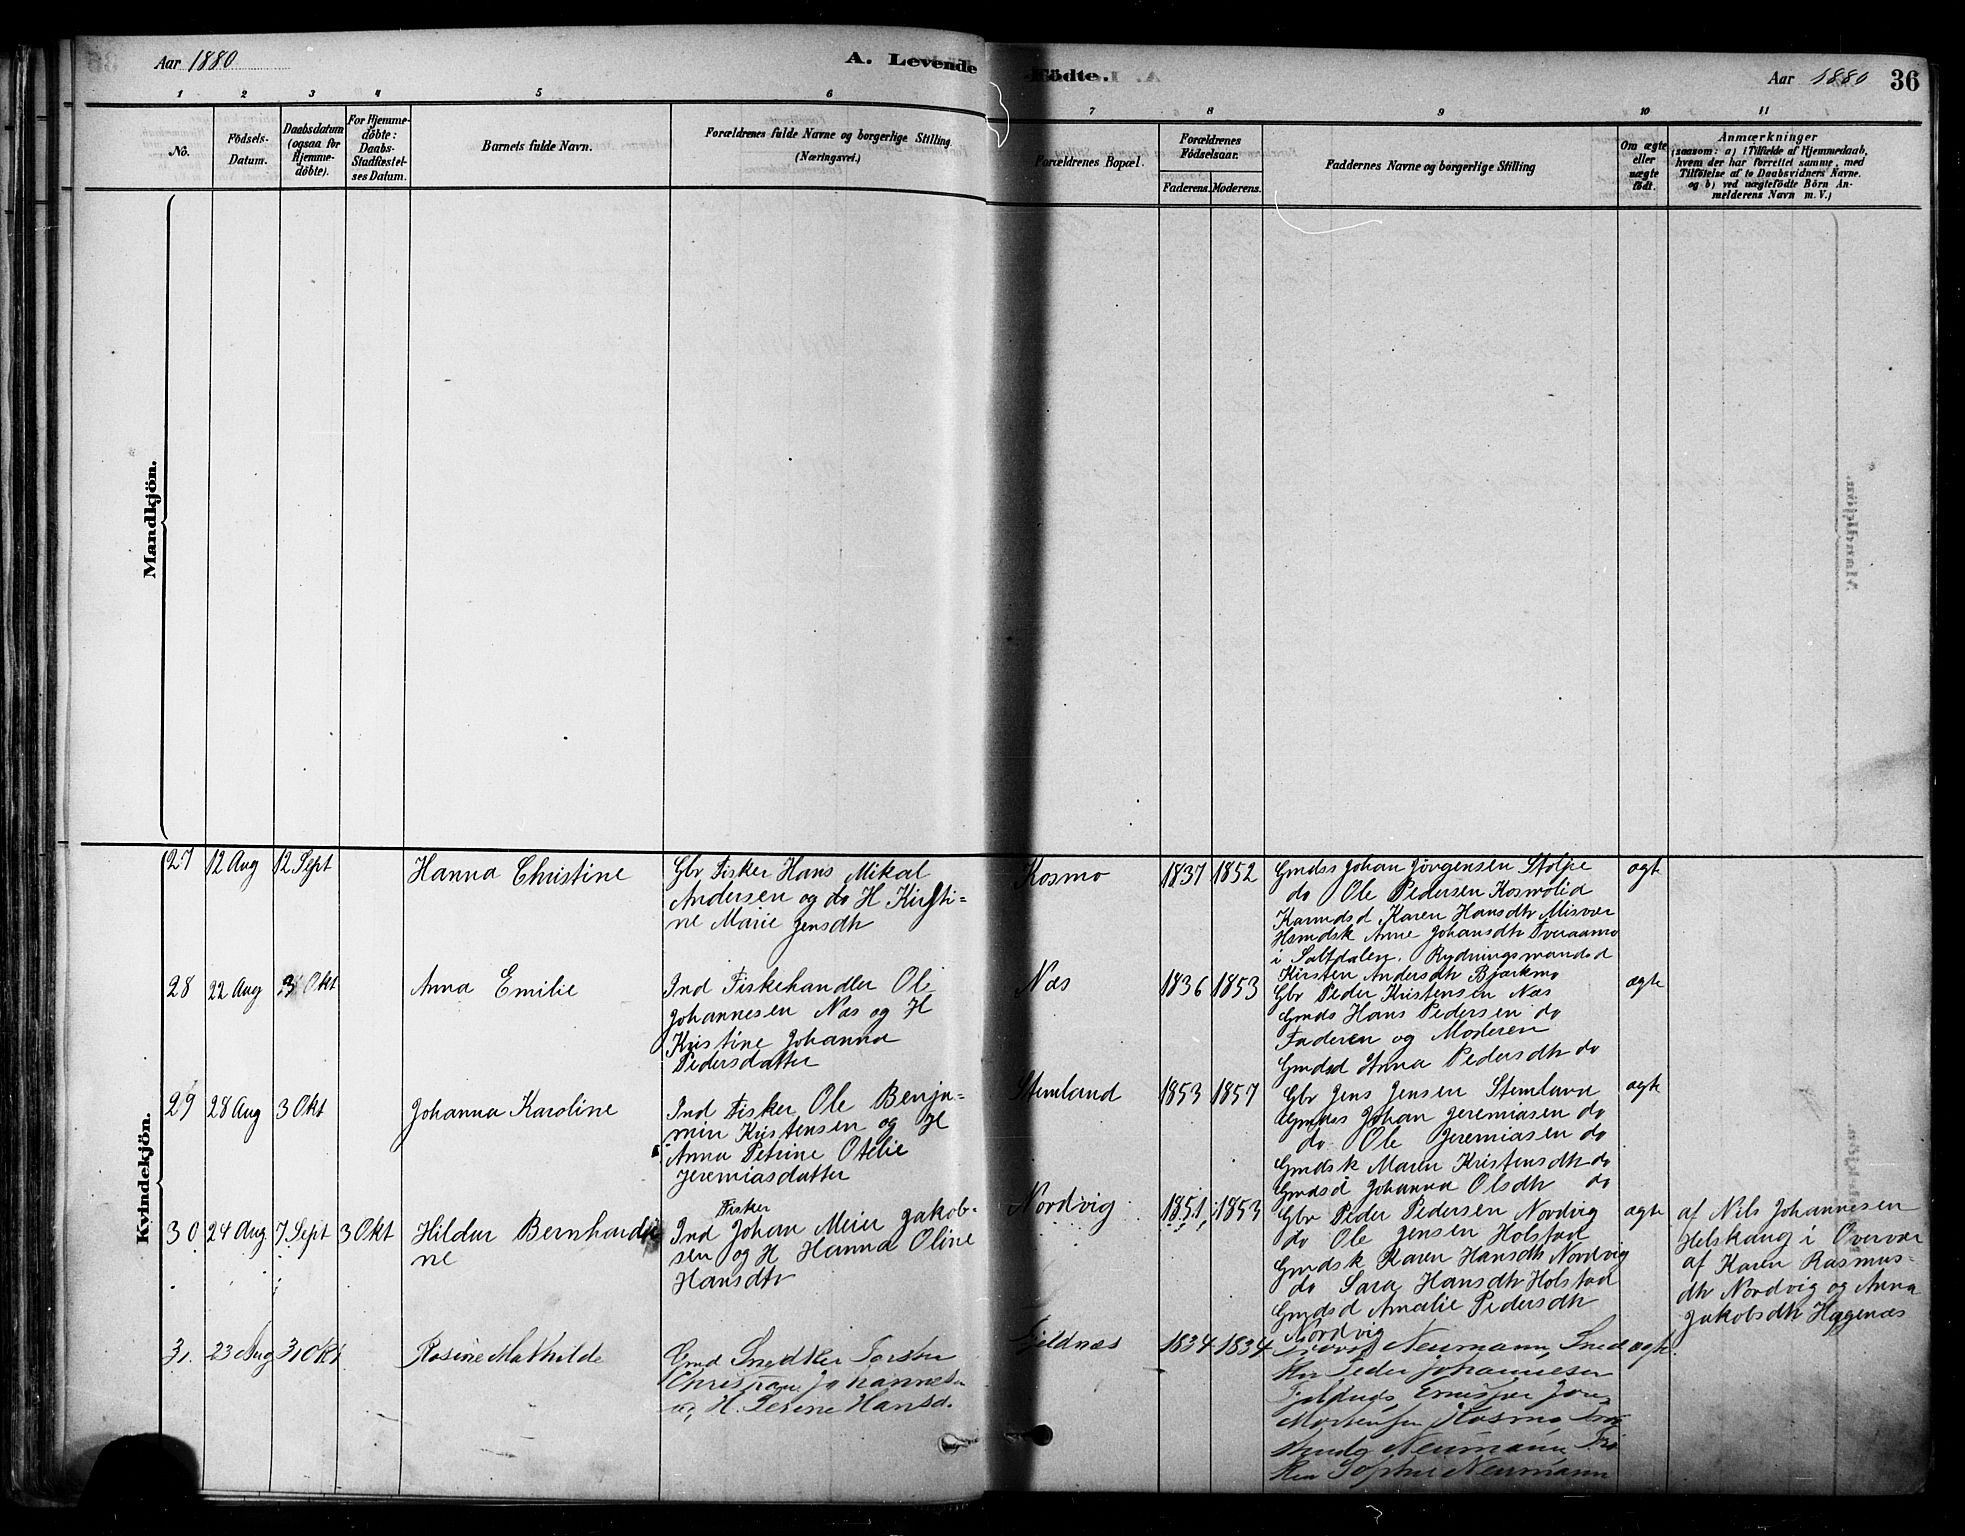 Aar 1880
A. Levende Födte.
Aar 1880 36
1 2 3 4 5 6 7 8 9 10 11
No.
Födsels-
Datum.
Daabsdatum
(ogsaa for
Hjemme-
döbte).
For Hjemme-
döbte:
Daabs-
Stadfæstel-
ses Datum.
Barnets fulde Navn.
Forældrenes fulde Navne og borgerlige Stilling.
(Næringsvei.)
Forældrenes Bopæl.
Forældrenes
Födselsaar.
Faderens. Moderens.
Faddernes Navne og borgerlige Stilling
Om ægte
eller
uægte
födt.
Anmærkninger
(saasom: a) i Tilfælde af Hjemmedaab,
hvem der har forrettet samme, med
Tilföielse af to Daabsvidners Navne.
og b) ved uægtefödte Börn An-
melderens Navn m. V.)
Mandkjön.
Kvindekjön.
27 12 Aug 12 Sept
Hanna Christine
Gbr Fisker Hans Mikal
Andersen og do H Kirsti-
ne Marie Jensdtr
Kosmo
1837 1852
Gmdss Johan Jörgensen Stolpe
do Ole Pedersen Kosmolid
Karen Hansdtr Misvær
Hsmdsk Anne Johansdtr Tveraamo
i Saltdalen. Rydningsmandsd
Kirsten Andersdtr Bjørkmo
ægte
28 22 Aug 3 Okt
Anna Emilie
Ind Fiskehandler Ole
Johannesen Næs og H
Kristine Johanna
Pedersdatter
Næs
1836 1853
Gbr Peder Kristensen Næs
Gmds Hans Pedersen do
Faderen og Moderen
Gmdsd Anna Pedersdtr do
ægte
29 28 Aug 3 Okt
Johanna Karoline
Ind Fisker Ole Benja-
min Kristensen og H
Anna Petrine Otelie
Jeremiasdatter
Stemland
1853 1857
Gbr Jens Jensen Stemland
Gmdss Johan Jeremiasen do
do Ole Jeremiasen do
Gmdsk Maren Kristensdtr do
Gmdsd Johanna Olsdtr do
ægte
30 24 Aug 7 Sept 3 Okt
Hildur Bernhardi
ne
Fisker
Ind Johan Meier Jakob-
sen og H Hanna Oline
Hansdtr
Nordvig
1851 1853
Gbr Peder Pedersen Nordvig
do Ole Jensen Holstad
Gmdsk Karen Hansdtr Nordvig
do Sara Hansdtr Holstad
Gmdsd Amalie Pedersdtr
Nordvig
ægte
af Nils Johannesen
Helskaug i Övervær
af Karen Rasmus-
dtr Nordvig og Anna
Jakobsdtr Hagenæs
31. 23 Aug 31 Okt
Rosine Mathilde
Gmd Snedker
Christian Johannes
og H. Serene Hansd.
Fjeldnæs
1834 1834
Neumann, Sned
ker Peder Johannesen
Fjeldnæs, Jens
Mortensen Kosmo
Neumann Frö
ken Sophie Neumann
ægte.